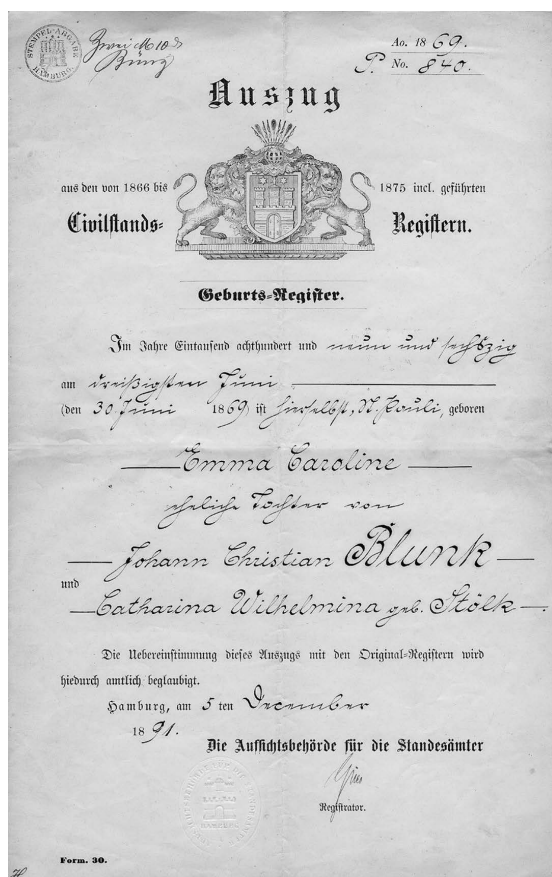 STEMPEL-ABGABE HAMBURG.
Zwei M 10
Ao. 1869.
P. No. 840.
Auszug
aus den von 1866 bis 1875 incl. geführten
Civilstands= Registern.
Geburts=Register.
Im Jahre Eintausend achthundert und neun und sechszig
am dreißigsten Juni
(den 30 Juni 1869) ist hierselbst, St. Pauli, geboren
Emma Caroline
eheliche Tochter von
Johann Christian Blunk
und
Catharina Wilhelmina geb. Stölk
Die Uebereinstimmung dieses Auszugs mit den Original=Registern wird
hiedurch amtlich beglaubigt.
Hamburg, am 5 ten December
1891.
Die Aufsichtsbehörde für die Standesämter
Registrator.
Form. 30.